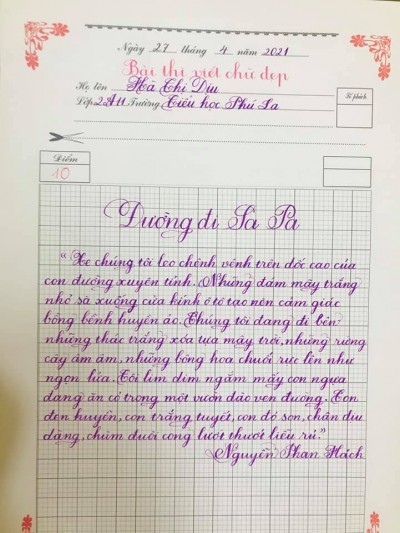 Ngày 27 tháng 4 năm 2021
Bài thi viết chữ đẹp
Họ tên Hà Thị Dịu
Lớp 2A11 Trường Tiểu học Phú La
Số phách
Điểm
10
Đường đi Sa Pa
“Xe chúng tôi leo chênh vênh trên dốc cao của
con đường xuyên tỉnh. Những đám mây trắng
nhỏ sà xuống cửa kính ô tô tạo nên cảm giác
bồng bềnh huyền ảo. Chúng tôi đang đi bên
những thác trắng xóa tựa mây trời, những rừng
cây âm âm, những bông hoa chuối rực lên như
ngọn lửa. Tôi lim dim ngắm mấy con ngựa
đang ăn cỏ trong một vườn đào ven đường. Con
đen huyền, con trắng tuyết, con đỏ son, chân dịu
dàng, chùm đuôi cong lướt thướt liễu rủ.”
Nguyễn Phan Hách